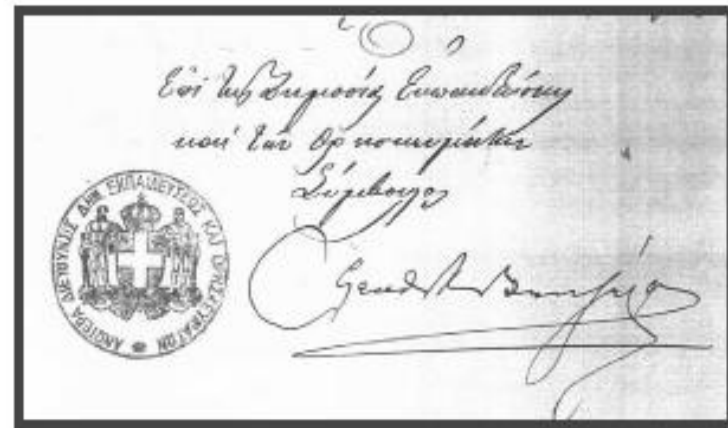 Ὁ
Ἐπί της Δημοσίας Εκπαιδεύσεως
καί των Θρησκευμάτων
Σύμβουλος
ΑΝΩΤΕΡΑ ΔΙΕΥΘΥΝΣΙΣ ΔΗΜ. ΕΚΠΑΙΔΕΥΣΕΩΣ ΚΑΙ ΘΡΗΣΚΕΥΜΑΤΩΝ